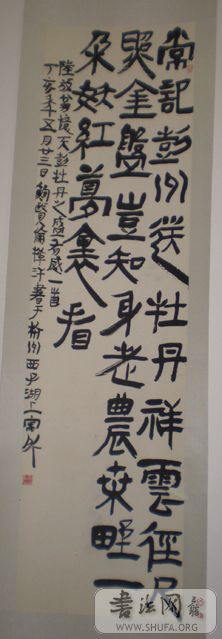 常記彭州送牡丹祥雲徑尺
照金盤豈知身老農桑野一
朵妖紅夢裏看
陸放翁憶天彭牡丹之盛有感一首
丁亥年五月廿三日鮑賢倫揮汗書于杭州西子湖上寓
書法网
WWW.SHUFA.ORG